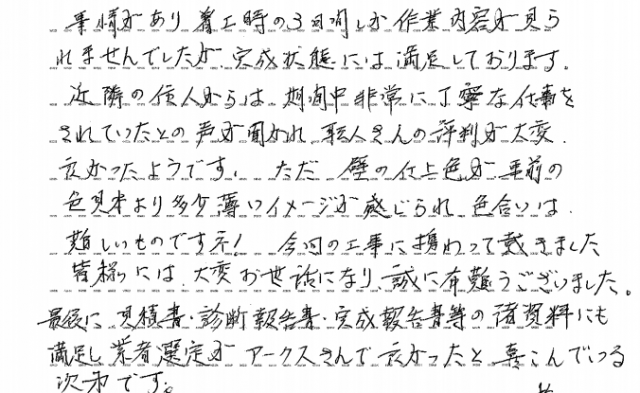 事情があり着工時の3日間しか作業内容が見ら
れませんでしたが、完成状態には満足しております。
近隣の住人からは、期間中非常に丁寧な仕事を
されていったとの声が聞かれ、職人さんの評判が大変
良かったようです。ただ、壁の仕上色が事前の
色見本より多少薄いイメージが感じられ、色合いは
難しいものですネ! 今回の工事に携わって戴きました
皆様には、大変お世話になり、誠に有難うございました。
最後に、見積書・診断報告書・完成報告書等の諸資料にも
満足し、業者選定がアークスさんで良かったと喜こんでいる
次第です。